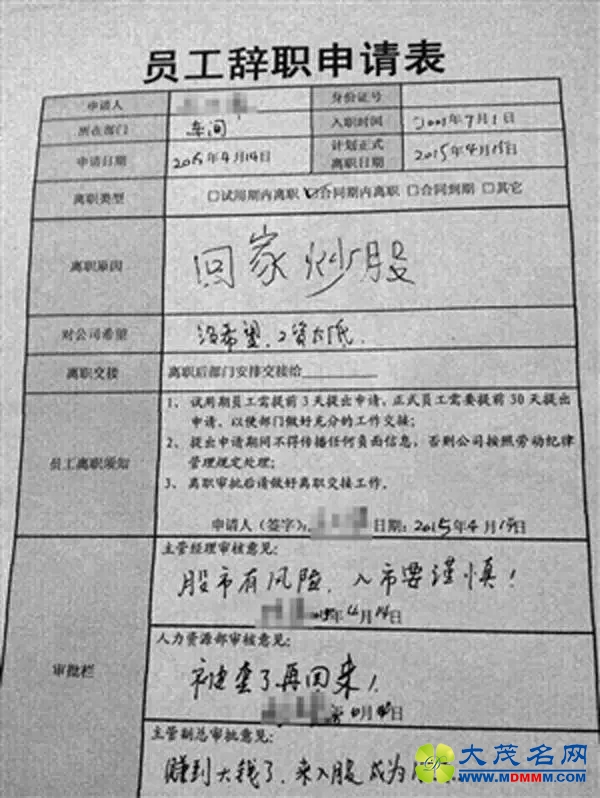 员工辞职申请表
申请人 身份证号
所在部门 车间 入职时间 2001年7月1日
申请日期 2015年4月14日 计划正式离职日期 2015年4月15日
离职类型 □试用期内离职 ☑合同期内离职 □合同到期 □其它
离职原因 回家炒股
对公司希望 没希望,工资太低.
离职交接 离职后部门安排交接给
员工离职须知
1、试用期员工需提前3天提出申请,正式员工需要提前30天提出
申请,以便部门做好充分的工作交接;
2、提出申请期间不得传播任何负面信息,否则公司按照劳动纪律
管理规定处理;
3、离职审批后请做好离职交接工作。
申请人(签字): 日期:2015年4月15日
审批栏
主管经理审核意见:
股市有风险,入市要谨慎!
年4月14日
人力资源部审核意见:
被套了再回来!
月 日
主管副总审批意见:
赚到大钱了,来入股成为
大茂名网
WWW.MDMMM.COM